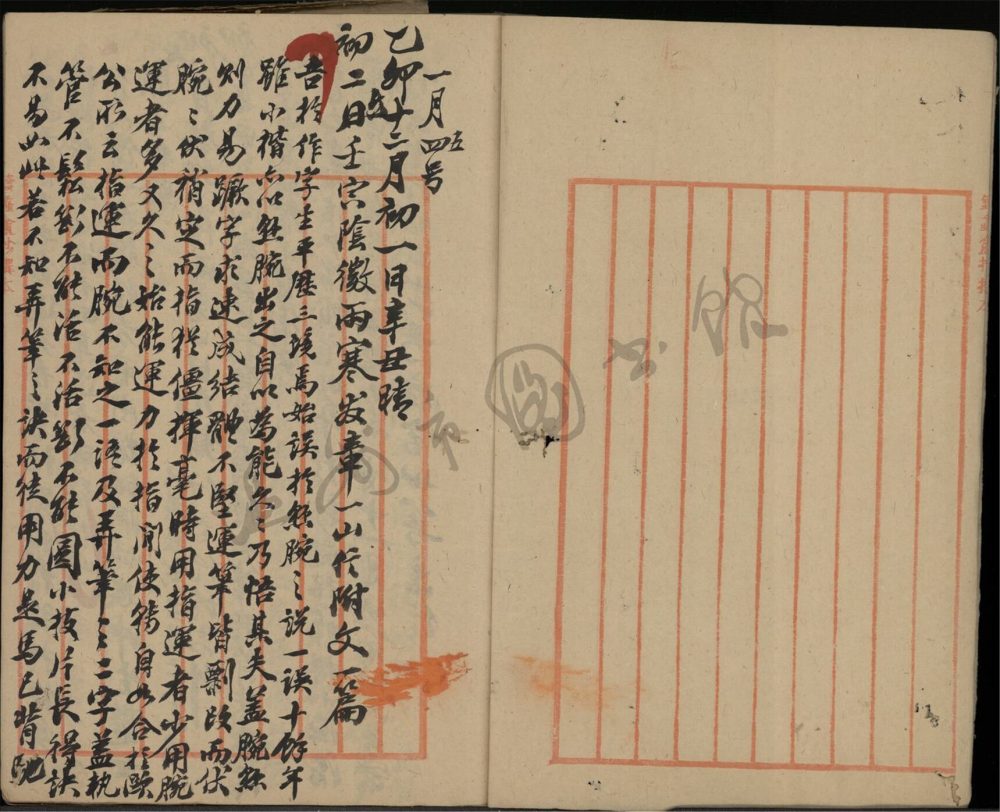 一月四号
五
乙卯十二月初一日辛丑晴
初二日壬寅陰微雨寒发章一山信附文一篇
吾於作字生平歷三境焉始误於懸腕之说一误十餘年
雖小楷亦以懸腕出之自以為能久之乃悟其失盖腕懸
则力易蹶字求速成结體不堅運筆皆剽改而伏
腕之伏稍定而指猶僵揮毫時用指運者少用腕
運者多又久之始能運力於指间使转自如合於歐
公所云指運而腕不知之一语及弄筆之二字盖执
管不鬆影不能活不活影不能圆小技片長得诀
不易如此若不知弄筆之诀而徒用力是馬已背馳
圖書館